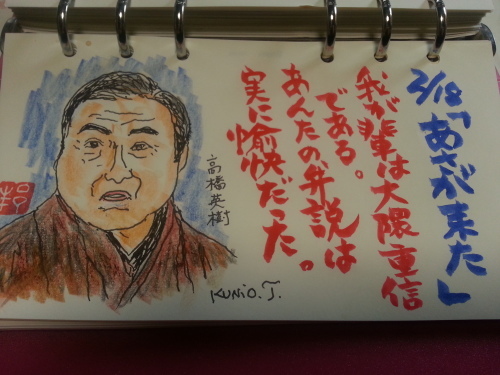 2/18「あさが来た」
我が輩は大隈重信
である。
あんたの弁説は
実に愉快だった。
高橋英樹
KUNIO.T.